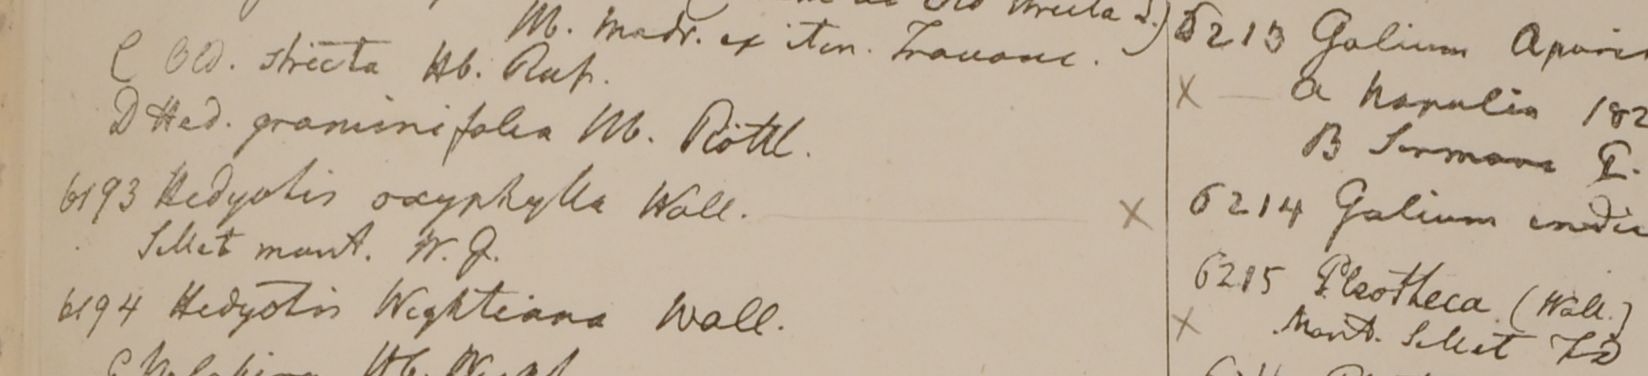 Hb. Madr. ex itin. Travanc.
C Old. stricta Hb. Rup.
D Hed. graminifolia Hb. Rottl.
6193 Hedyotis oxyphylla Wall.
Sillet mont. W. G.
6194 Hedyotis Wightiana Wall.
6213 Galium Apari
a Napalia 182
B Sirmore
6214 Galium indic
6215 Pleotheca (Wall.)
Mont. Sillet FD